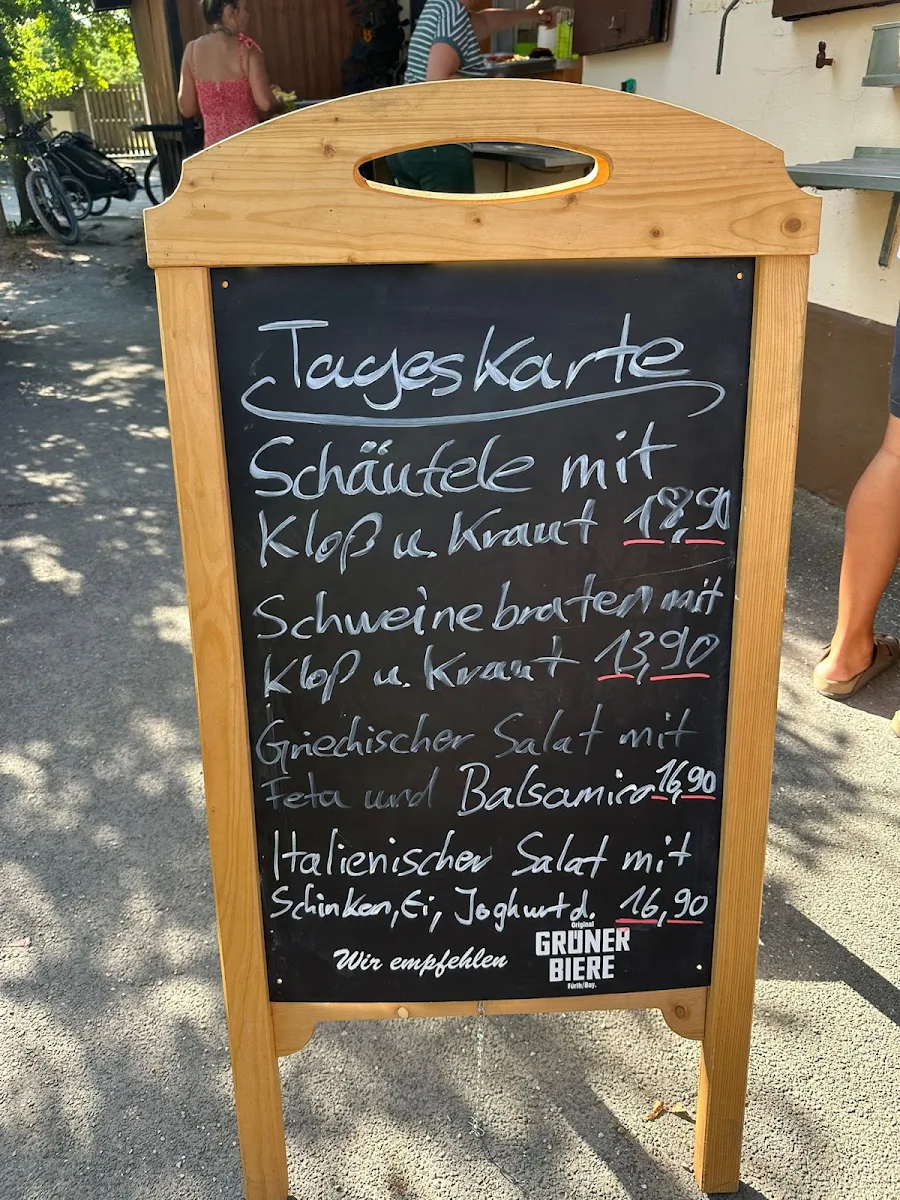 Tageskarte
Schäufele mit
Kloß u. Kraut 18,90
Schweinebraten mit
Kloß u. Kraut 13,90
Griechischer Salat mit
Feta und Balsamico 16,90
Italienischer Salat mit
Schinken, Ei, Joghurtd. 16,90
Wir empfehlen
Original
GRÜNER
BIERE
Fürth/Bay.